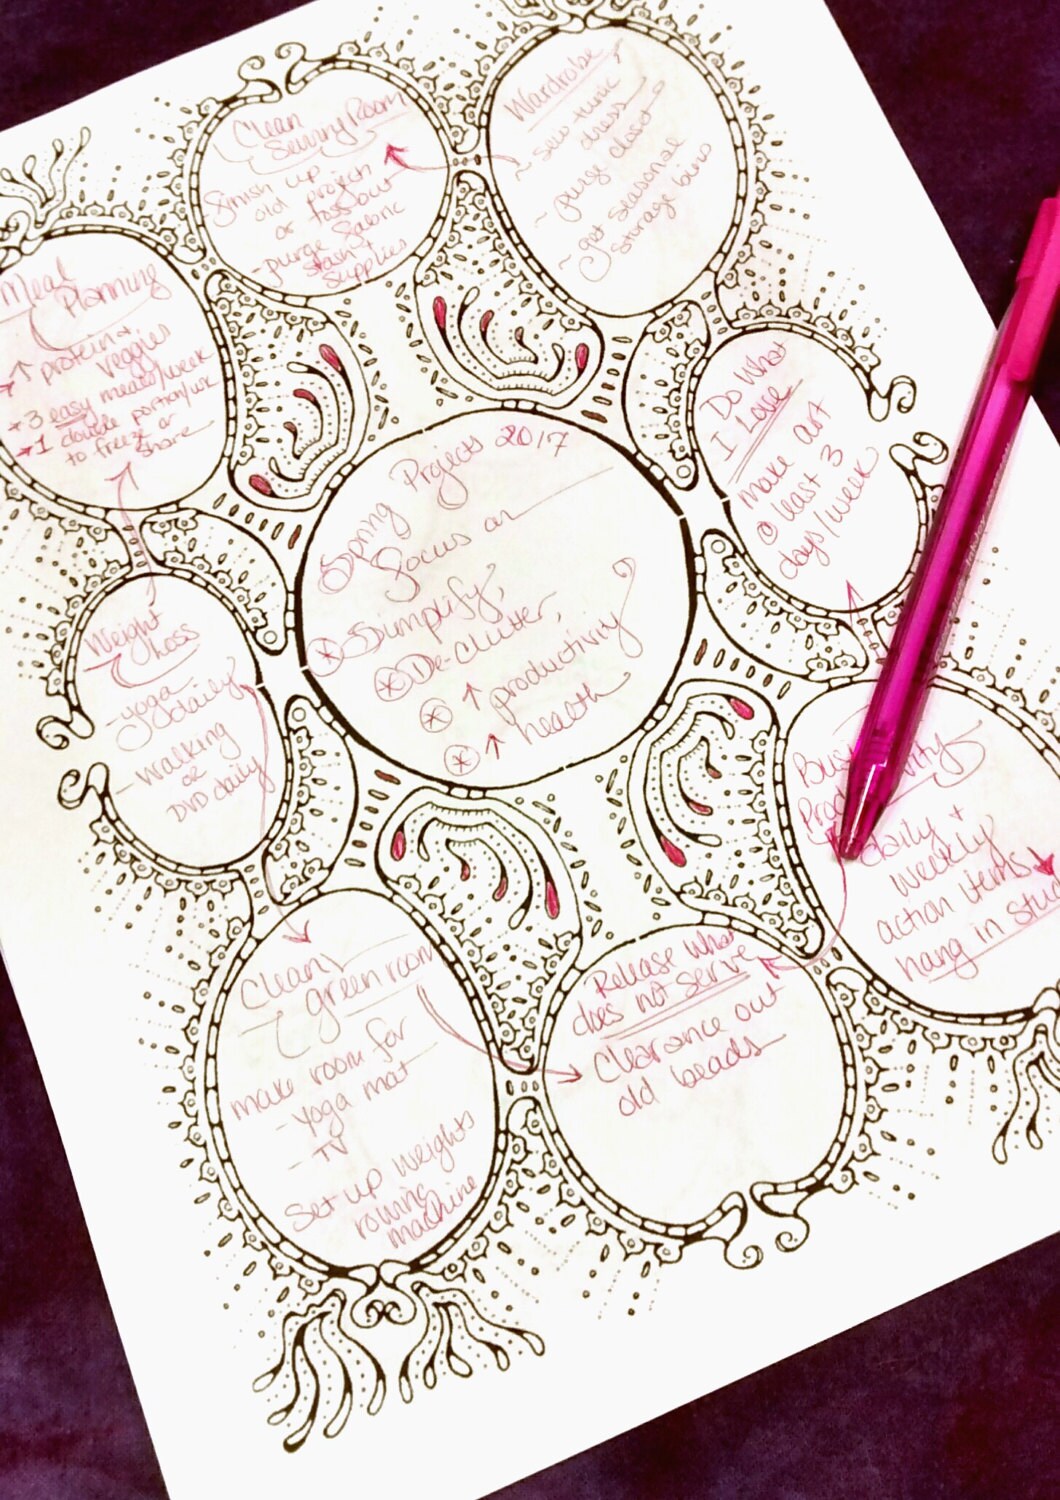 Spring Projects 2017
Focus on
Simplify,
De-Clutter,
↑ productiviy
↑ health
Clean
Sewing Room
- finish up
old project
or toss out
- purge fabric
stash
supplies
Wardrobe
~ sew tunic
dress
~ purge closet
~ get seasonal
storage bins
I Do What
I Love
make art
@ least 3
days/week
Busi
Prod vity
daily +
weekly
action items
hang in stud
Release What
does not serve
Clearance out
old beads
Clean
green room
make room for
- yoga mat
- TV
Set-up weights
rowing
machine
Weight
Loss
- yoga
daily
- Walking
or
DVD daily
Meal
Planning
→ ↑ protein +
veggies
→ 3 easy meals/week
→ 1 double portion/wk
to freeze or
share